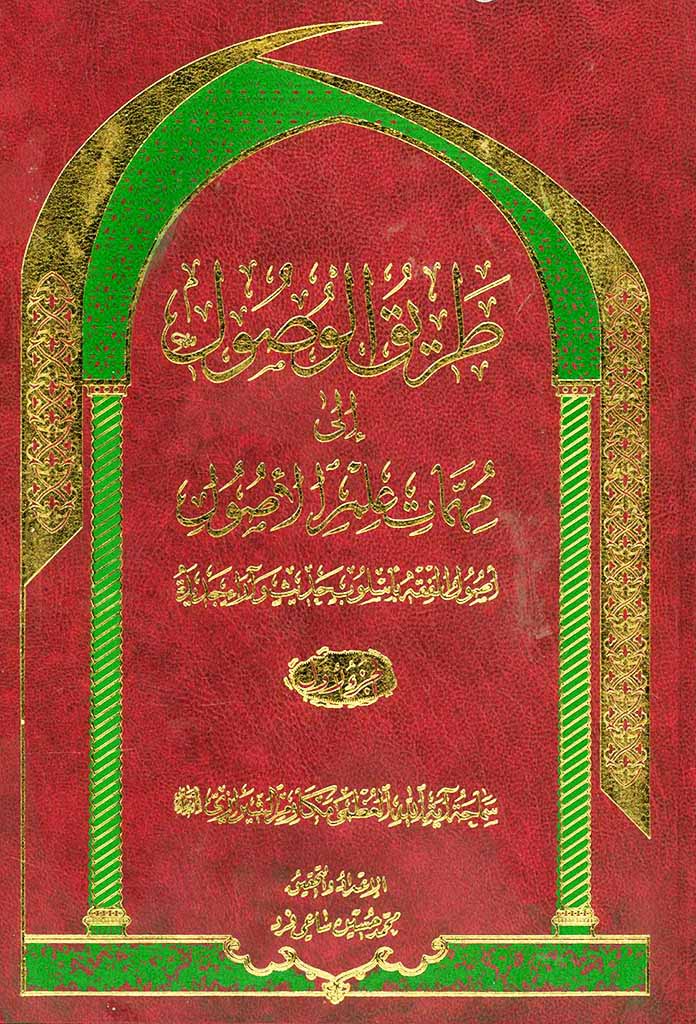 طَرِيقُ الوُصُولِ
إلى
مُهِمَّاتِ عِلْمِ الأُصُولِ
أُصُولُ الفِقْهِ بِأُسْلُوبٍ حَدِيثٍ وَآرَاءٍ جَدِيدَةٍ
سماحة آية الله العظمى مكارم الشيرازي
الإعداد والتحقيق
محمد حسين ساعي فرد